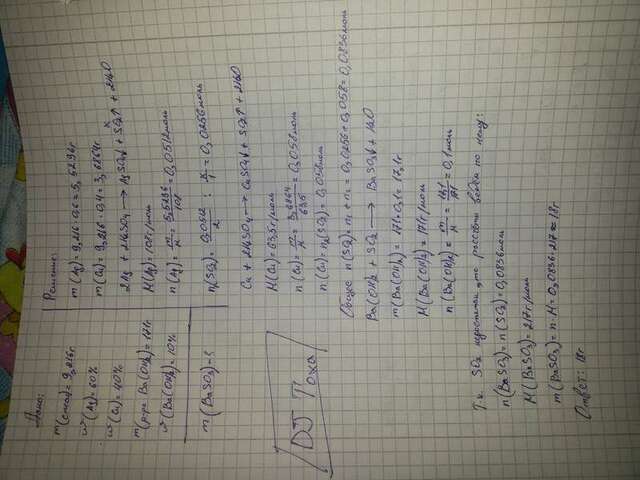 Дано:
m(смеси) = 9,216г
ω(Ag) = 60%
ω(Cu) = 40%
m(р-ра Ba(OH)₂) = 171г
ω(Ba(OH)₂) = 10%
m(BaSO₃) - ?
DJ Тоха
Решение:
m(Ag) = 9,216·0,6 = 5,5296г
m(Cu) = 9,216·0,4 = 3,6864г
2Ag + 2H₂SO₄ → Ag₂SO₄ + SO₂↑ + 2H₂O
M(Ag) = 108г/моль
n(Ag) = m/M = 5,5296/108 = 0,0512моль
n(SO₂) = 0,0512/2 : x/1 = 0,0256моль
Cu + 2H₂SO₄ → CuSO₄ + SO₂↑ + 2H₂O
M(Cu) = 63,5г/моль
n(Cu) = m/M = 3,6864/63,5 = 0,058моль
n(Cu) = n₂(SO₂) = 0,058моль
Общее n(SO₂) = n₁ + n₂ = 0,0256 + 0,058 = 0,0836моль
Ba(OH)₂ + SO₂ → BaSO₃↓ + H₂O
m(Ba(OH)₂) = 171·0,1 = 17,1г
M(Ba(OH)₂) = 171г/моль
n(Ba(OH)₂) = m/M = 17,1/171 = 0,1моль
Т.к. SO₂ в недостатке, то рассчеты ведём по нему:
n(BaSO₃) = n(SO₂) = 0,0836моль
M(BaSO₃) = 217г/моль
m(BaSO₃) = n·M = 0,0836·217 ≈ 18г
Ответ: 18г